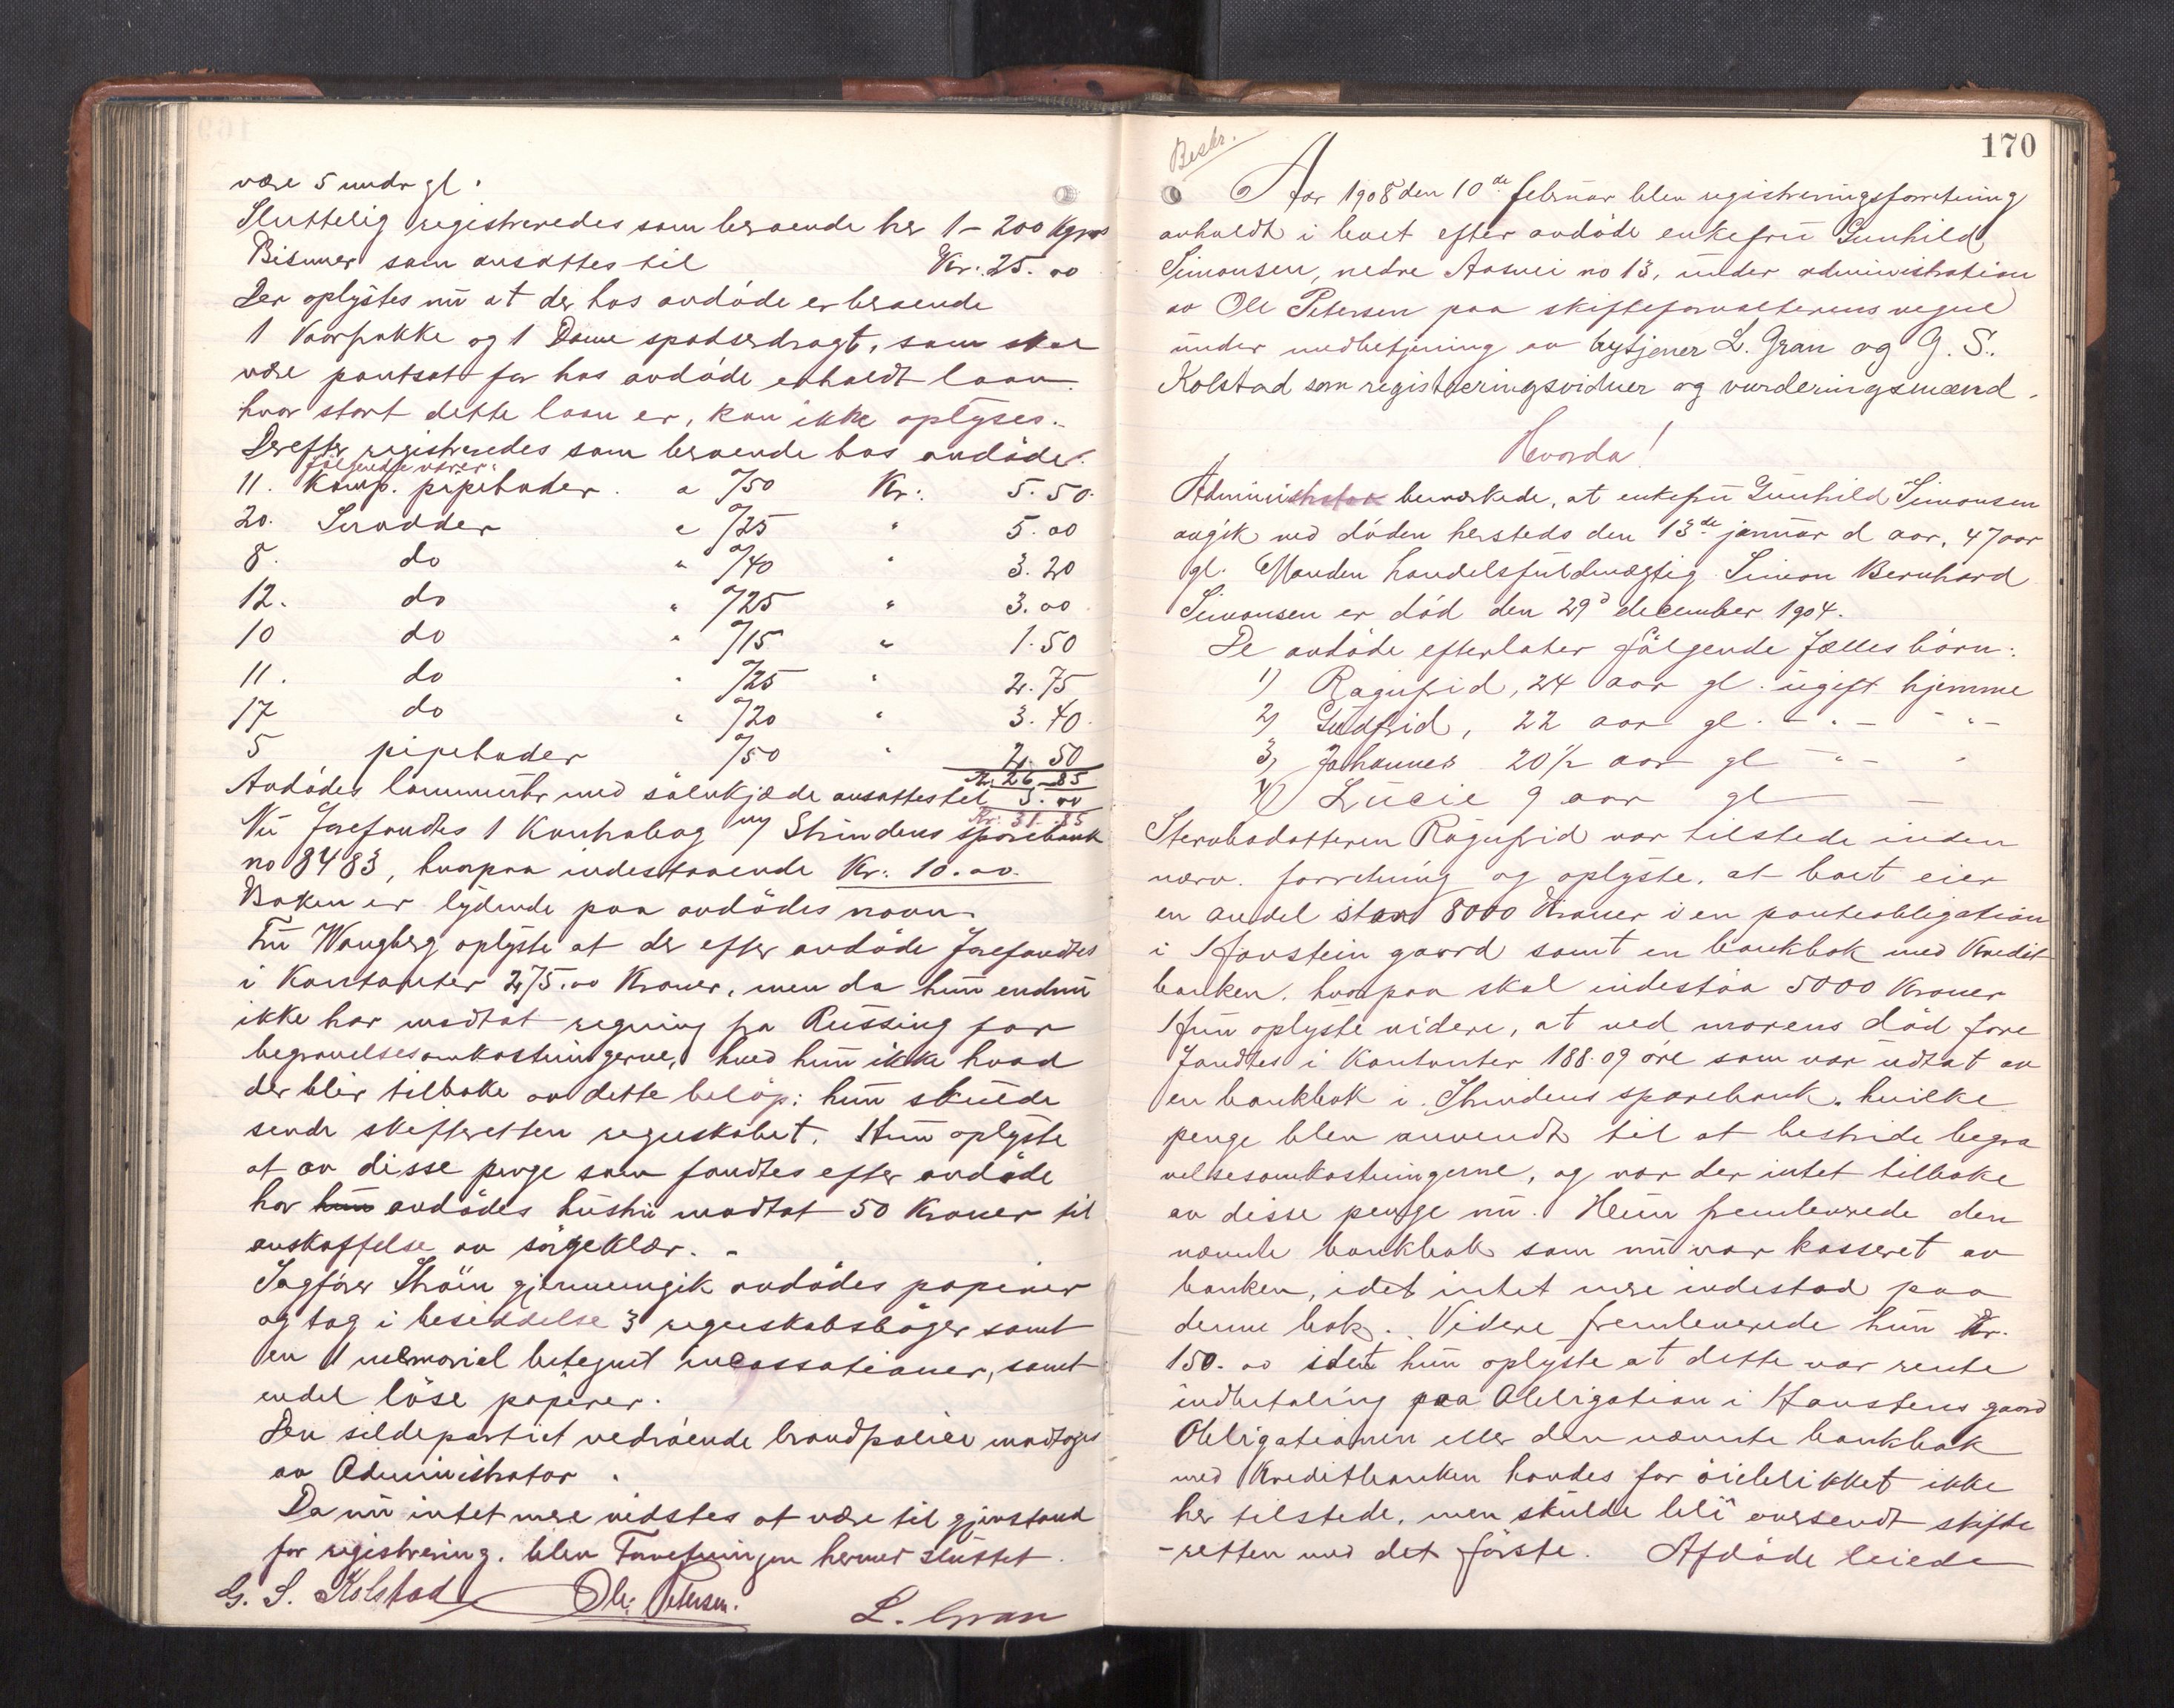 være 5 mndr gl.
Sluttelig registreredes som beroende her 1 - 200 Kgrs
Bismer som ansattes til Kr: 25.00
Der oplystes nu at der hos avdöde er beroende
1 Vaarfrakke og 1 Dame spadserdragt, som skal
være pantsat for hos avdöde erholdt laan.
hvor stort dette laan er, kan ikke oplyses.
Derefter registreredes som beroende hos avdöde
følgende varer:
11. Komp. pipehoder a ⁰/50 Kr: 5.50.
20. Snadder a ⁰/25 " 5.00
8. do " ⁰/40 " 3.20
12. do " ⁰/25 " 3.00
10 do " ⁰/15 " 1.50
11. do " ⁰/25 " 2.75
17 do " ⁰/20 " 3.40.
5 pipehoder ⁰/50 " 2.50
Kr. 26.85
Avdödes lommeuhr med sölvkjæde ansattes til 5.00
Kr: 31.85
Nu forefandtes 1 Kontrabog m/ Strindens sparebank
no 8483, hvorpaa indestaaende Kr: 10.00.
Boken er lydende paa avdödes navn.
Fru Wangberg oplyste at der efter avdöde forefandtes
i Kontanter 275.00 Kroner, men da hun endnu
ikke har modtat regning fra Russing for
begravelsesomkostningerne, hved hun ikke hvad
der blir tilbake av dette belöp: hun skulde
sende skifteretten regnskabet. Hun oplyste
at av disse penge som fandtes efter avdöde
har hun avdödes hustru modtat 50 Kroner til
anskaffelse av sörgeklær. -
Sagförer Ström gjennemgik avdödes papirer
og tog i besiddelse 3 regnskabsböger samt
en 1 memorial betegnet incassationer, samt
endel löse papirer.
Den sildepartiet vedröende brandpolice modtoges
av Administrator.
Da nu intet mere vidstes at være til gjenstand
for registrering, blev Forretningen hermed sluttet.
G. S. Kolstad Ole Petersen. L. Gran
Beskr.
170
Aar 1908 den 10de februar blev registreringsforretning
avholdt i boet efter avdöde enkefru Gunhild
Simonsen, nedre Aasvei no 13, under administration
av Ole Petersen paa skifteforvalterens vegne
under medbetjening av bytjener L. Gran og G. S.
Kolstad som registreringsvidner og vurderingsmænd.
Hvorda!
Administrator bemærkede, at enkefru Gunhild Simonsen
avgik ved döden hersteds den 13de januar d aar, 47 aar
gl. Manden handelsfuldmægtig Simon Bernhard
Simonsen er död den 29d december 1904.
De avdöde efterlater fölgende fælles börn:
1) Ragnfrid, 24 aar gl. ugift hjemme
2) Gudfrid, 22 aar gl. - " - - " -
3) Johannes 20½ aar gl - " - "
4) Lucie 9 aar gl — —
Stervbodatteren Ragnfrid var tilstede inden
nærv. forretning og oplyste, at boet eier
en andel stor 8000 Kroner i en panteobligation
i Havstein gaard samt en bankbok med Kredit
banken, hvorpaa skal indestaa 5000 Kroner
Hun oplyste videre, at ved morens död fore
fandtes i Kontanter 188.09 öre som var udtat av
en bankbok i Strindens sparebank, hvilke
penge blev anvendt til at bestride begra
velsesomkostningerne, og var der intet tilbake
av disse penge nu. Hun fremleverede den
nævnte bankbok som nu var kasseret av
banken, idet intet mere indestod paa
denne bok. Videre fremleverede hun Kr.
150.00 idet hun oplyste at dette var rente
indbetaling paa Obligation i Havstens gaard
Obligationen eller den nævnte bankbok
med Kreditbanken havdes for öieblikket ikke
her tilstede, men skulde bli oversendt skifte
-retten med det förste. Afdöde leiede